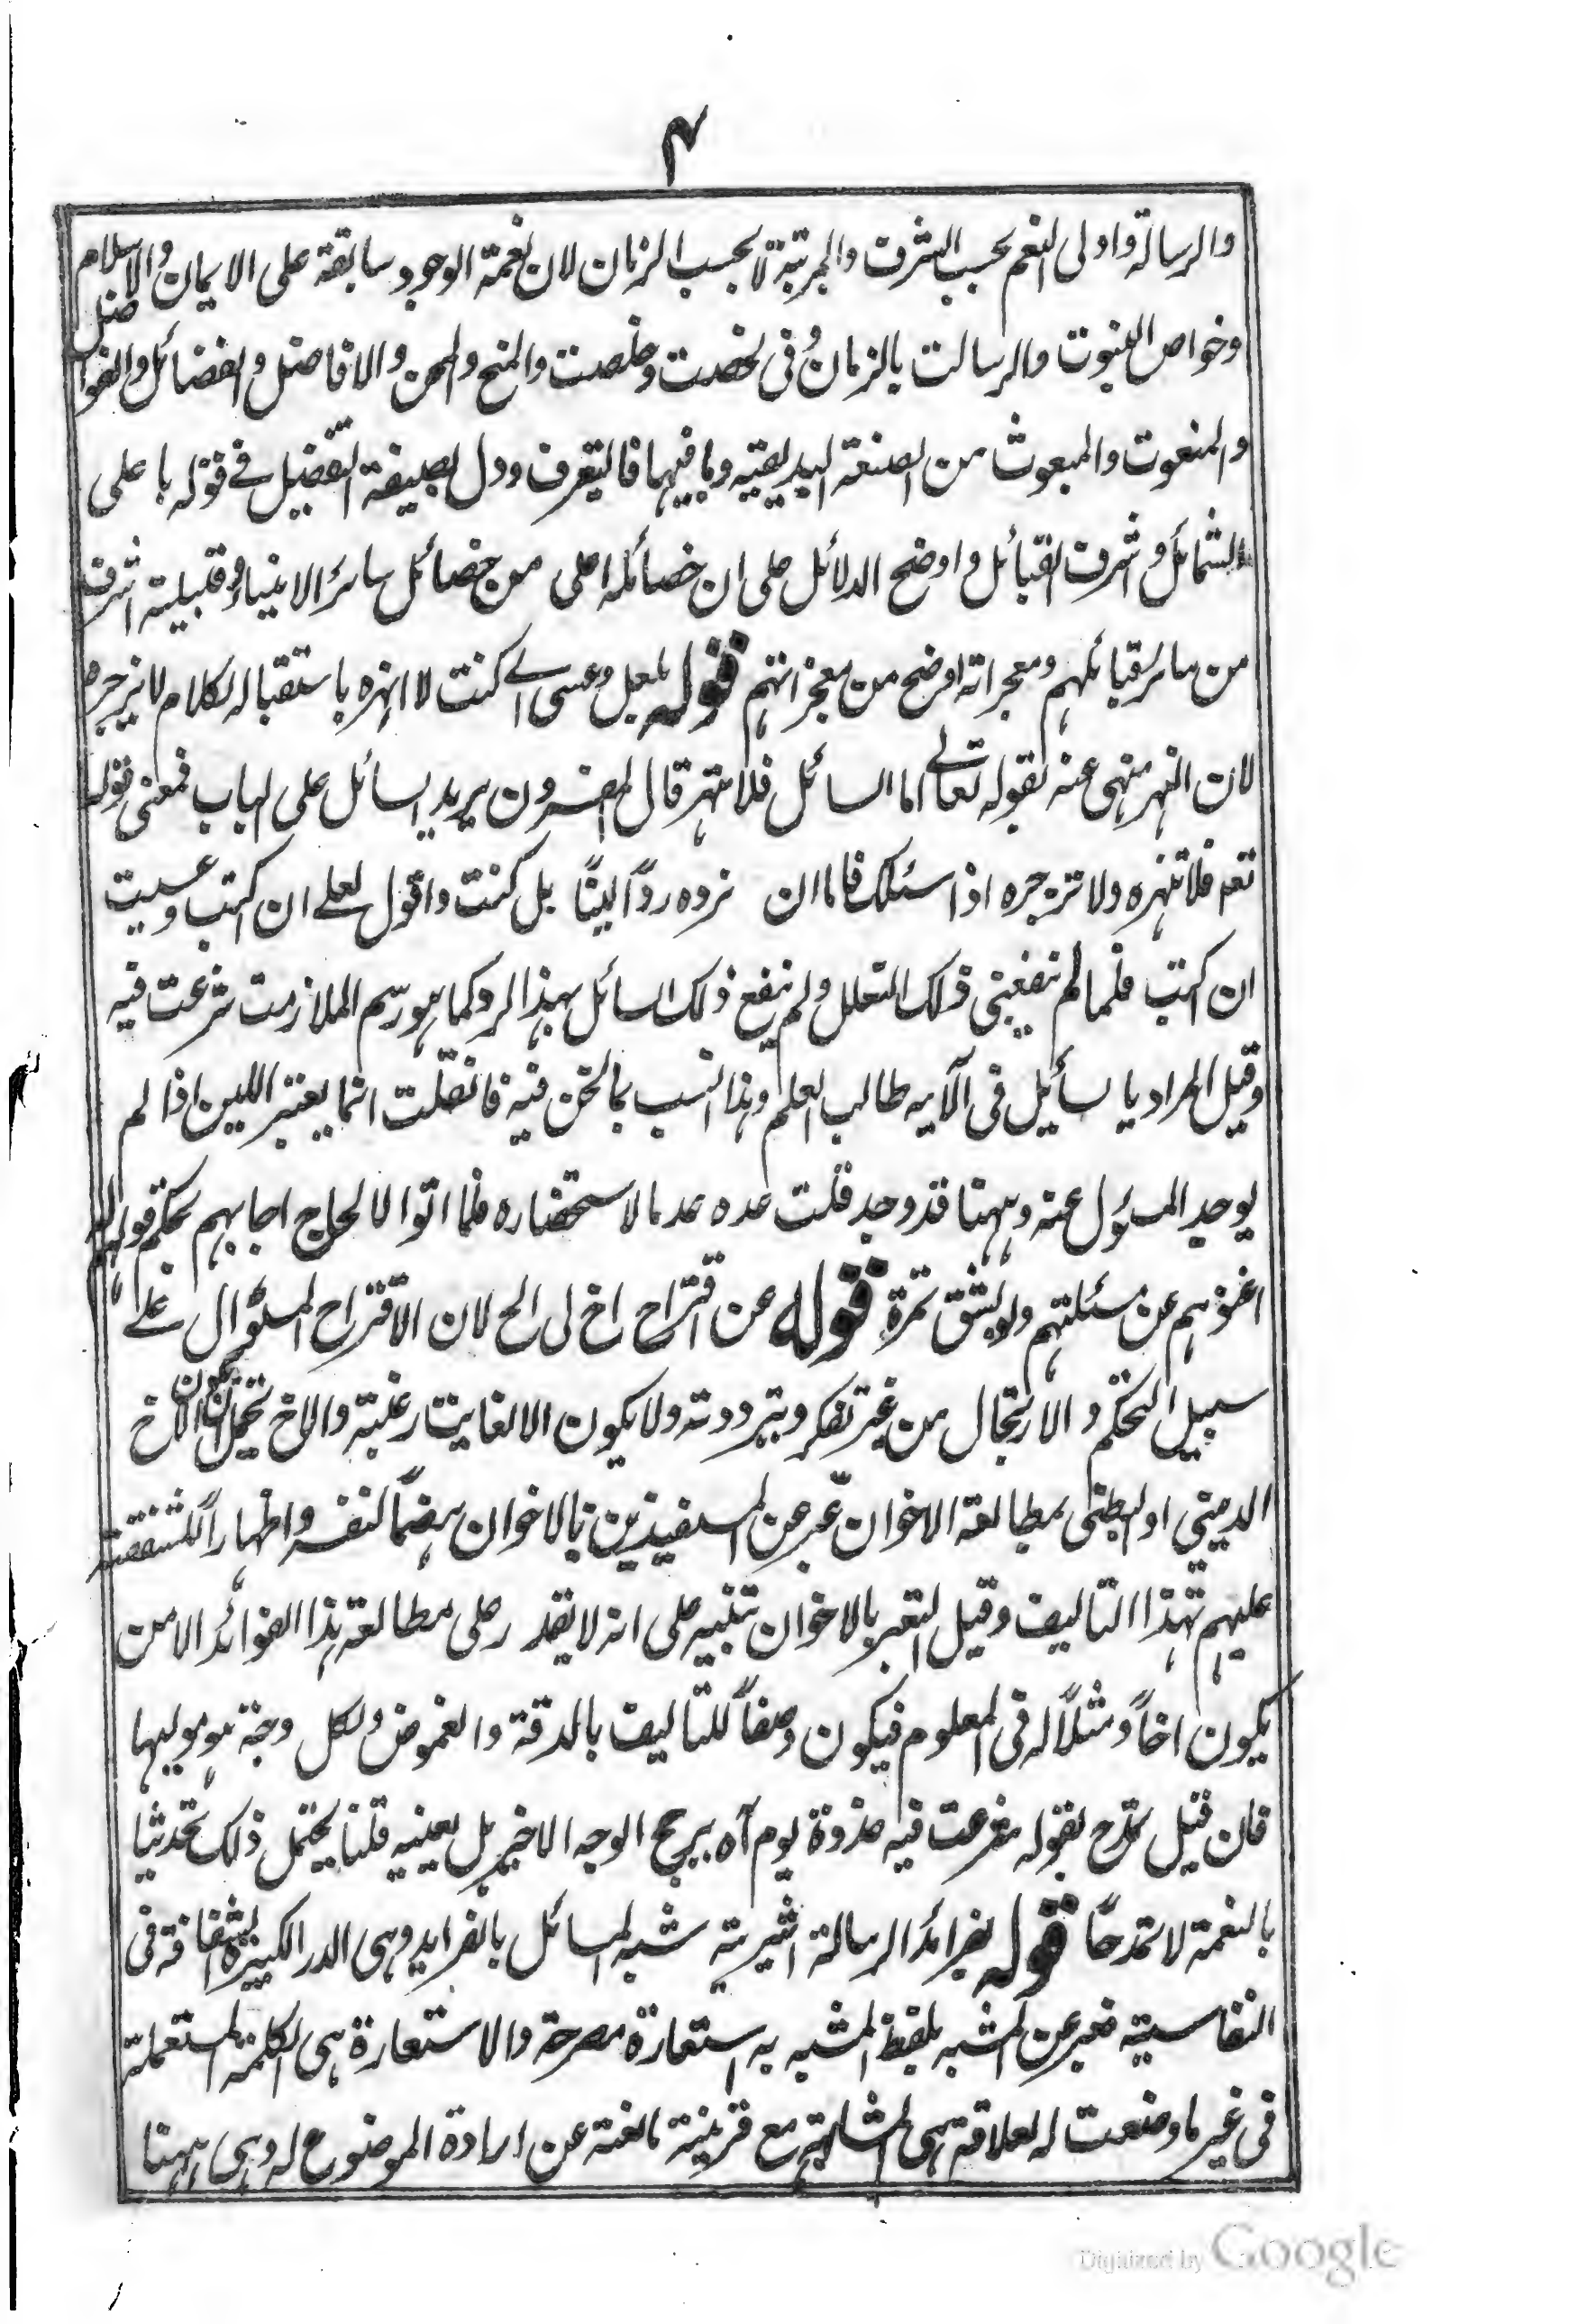 ۴
والرسالة واولى النعم بحسب الشرف والمرتبة لا بحسب الزمان لان نعمة الوجود سابقة على الايمان والاسلام
وخواص النبوت والرسالت بالزمان وفى نحصدت وخلصت والمنح والمهن والافاضل والفضائل والفواضل
والمنعوت والمبعوث من الصنعة البديعية وما فيهما فالتعرف ودل بصيغة التفضيل فے قوله باعلى
الشمائل واشرف القبائل واوضح الدلائل على ان خصائله اعلى من خصائل سائر الانبياء وقبيلته اشرف
من سائر قبائلهم ومعجزاته اوضح من معجزاتهم قوله بلعل وعسى اے كنت لا انهره باستقباله لكلام لا يزجره
لان النهر منهى عنه لقوله تعالے اما السائل فلا تنهر قال المفسرون يريد السائل على الباب فمعنى قوله
تعم فلا تنهره ولا تزجره اذا سئلك فاما ان نرده ردًا لينًا بل كنت واقول لعلے ان اكتب وعسيت
ان اكتب فلما لم ينفعنى ذلك التعلل ولم ينفع ذلك السائل بهذا الرد كما هو رسم الملازمت شرعت فيه
وقيل المراد بالسائل فى الآيه طالب العلم وهذا انسب بما نحن فيه فان قلت انما يعتبر اللين اذا لم
يوجد المسئول عنه وههنا قد وجد قلت عده عدما لاستحضاره فلما اتوا الالحاح اجابهم بحكم قوله
اغنوهم عن مسئلتهم ولو بشق تمرة قوله عن اقتراح اخ لى الخ لان الاقتراح السؤال علے
سبيل التحكم والارتجال من غير تفكر وبتر ودته ولا يكون الا لغايت رغبته والاخ يحتمل ان يكون الاخ
الدينى او البطنى بمطالعة الاخوان عبر عن المستفيذين بالاخوان هضمًا لنفسه واظهارًا للشفقة
عليهم بهذا التاليف وقيل التعبر بالاخوان تنبيه على انه لا يقدر على مطالعة هذا الفوائد الا من
يكون اخًا ومثلًا له فى المعلوم فيكون وصفًا للتاليف بالدقة والغموض ولكل وجهة هو موليها
فان قيل تمدح بقوله شرعت فيه غذوة يوم آه يرجح الوجه الاخير بل يعنيه قلنا يحتمل ذلك تحديثا
بالنعمة لا تمدحًا قوله بفرائد الرسالة اثيرية شبه المسائل بالفرايد وهى الدر الكبيرة الشفافة فى
النفاسية فعبر عن المشبه بلفظ المشبه به استعارة مصرحة والاستعارة هى الكلمة المستعملة
فى غير ما وضعت له لعلاقة هى المشابهة مع قرينة مانعة عن ارادة الموضوع له وهى ههنا
Digitized by Google